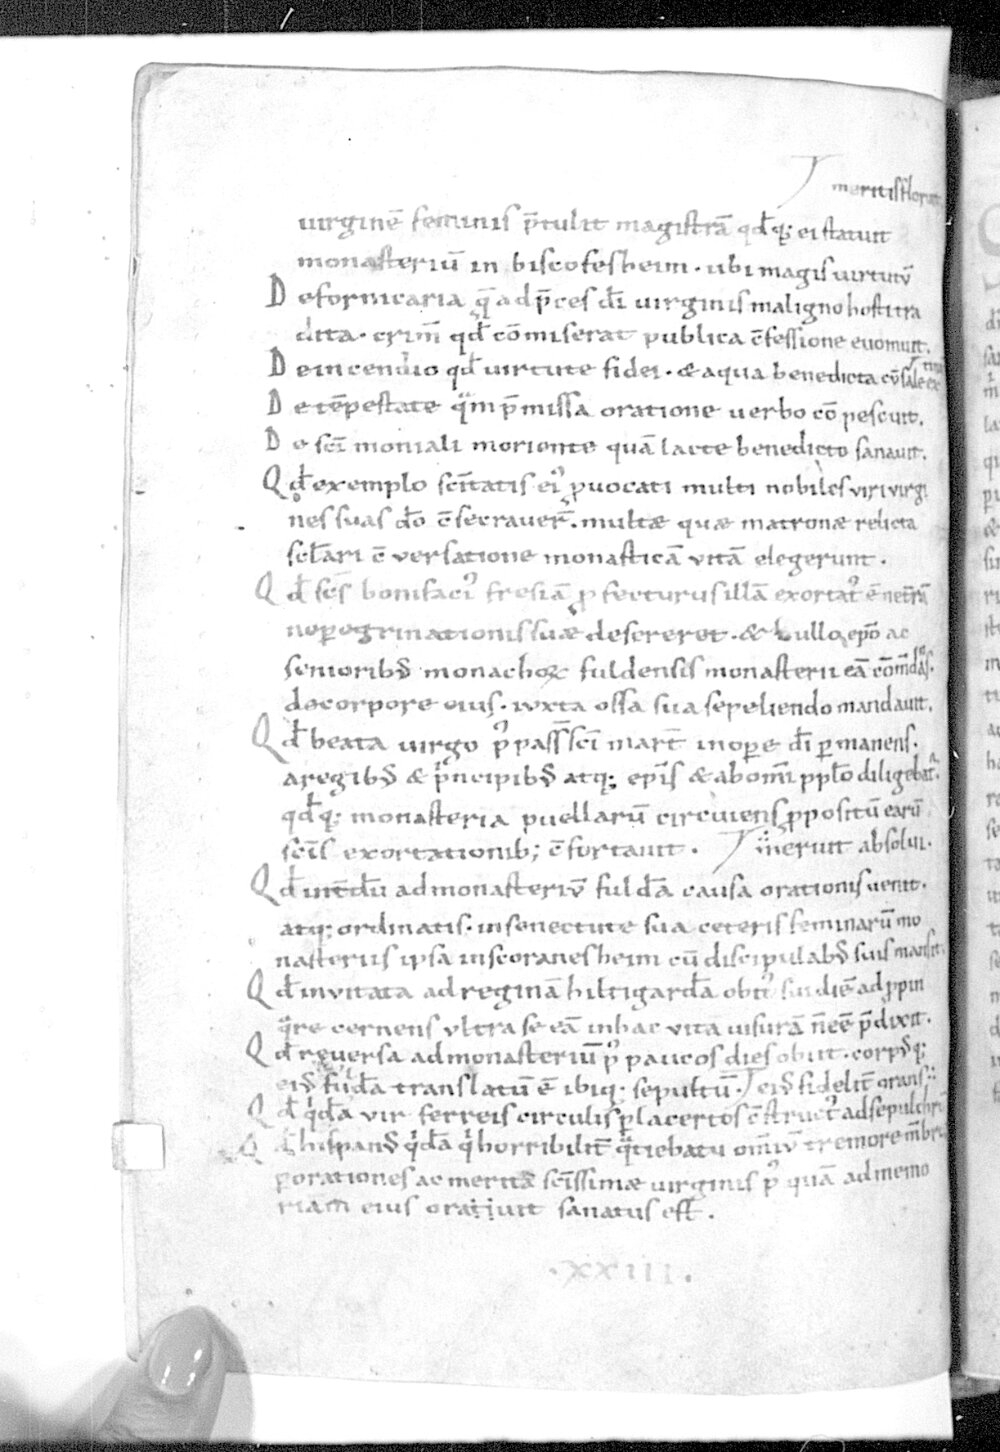 meritis floruit
uirginē feminis p̄tulit magistrā qd̄q; ei statuit
monasteriū in biscofesheim · ubi magis uirtutū
De fornicaria q̄ ad p̄ces dī uirginis maligno hosti tra
dita · crim̄ qd̄ cōmiserat publica c̄fessione euomuit.
De incendio qd̄ uirtute fidei · & aqua benedicta cū sale ex
tinx
De tēpestate quā p̄missa oratione uerbo cōpescuit.
De sc̄imoniali moriente quā lacte benedicto sanauit.
Qd̄ exemplo sc̄itatis ei' prouocati multi nobiles uiri uirgi
nes suas dō c̄secrauer̄ · multæ quæ matronæ relicta
sc̄lari c̄uersatione monasticā uitā elegerunt .
Qd̄ sc̄s bonifaci' fresiā profecturus illā exortat' ē ne t̄rā
ne peregrinationis suæ desereret · & lullo ep̄o ac
seniorib; monachoꝝ fuldensis monasterii eā cōm̄dās.
de corpore eius · iuxta ossa sua sepeliendo mandauit.
Qd̄ beata uirgo p' pass̄ sc̄i mar̄t in opere dī permanens.
a regib; & principib; atq; ep̄is & ab om̄i pp̄lo diligebat'
qd̄q; monasteria puellarū circuiens propositū earū
sc̄is exortationib; c̄fortauit . meruit absolui.
Qd̄ int̄dū ad monasteriū fuldā causa orationis uenit.
atq; ordinatis · in senectute sua ceteris feminarū mo
nasteriis ipsa in scoranesheim cū discipulab; suis mansit.
Qd̄ inuitata ad reginā hiltigardā obit' sui diē ad propin
quare cernens ultra se eā in hac uita uisurā n̄ eē p̄dixit.
Qd̄ reuersa ad monasteriū p' paucos dies obiit · corp'q;
ei' fuldā translatū ē ibiq; sepultū . ei' fidelit̄ orans ::
Qd̄ quidā uir ferreis circulis per lacertos c̄strict' ad sepulchrū
Qd̄ hispan' quidā qui horribilit̄ quatiebatur om̄iū tremore mēbrorū
per orationes ac merita sc̄issimæ uirginis p' quā ad memo
riam eius orauit sanatus est .
· XXIII .